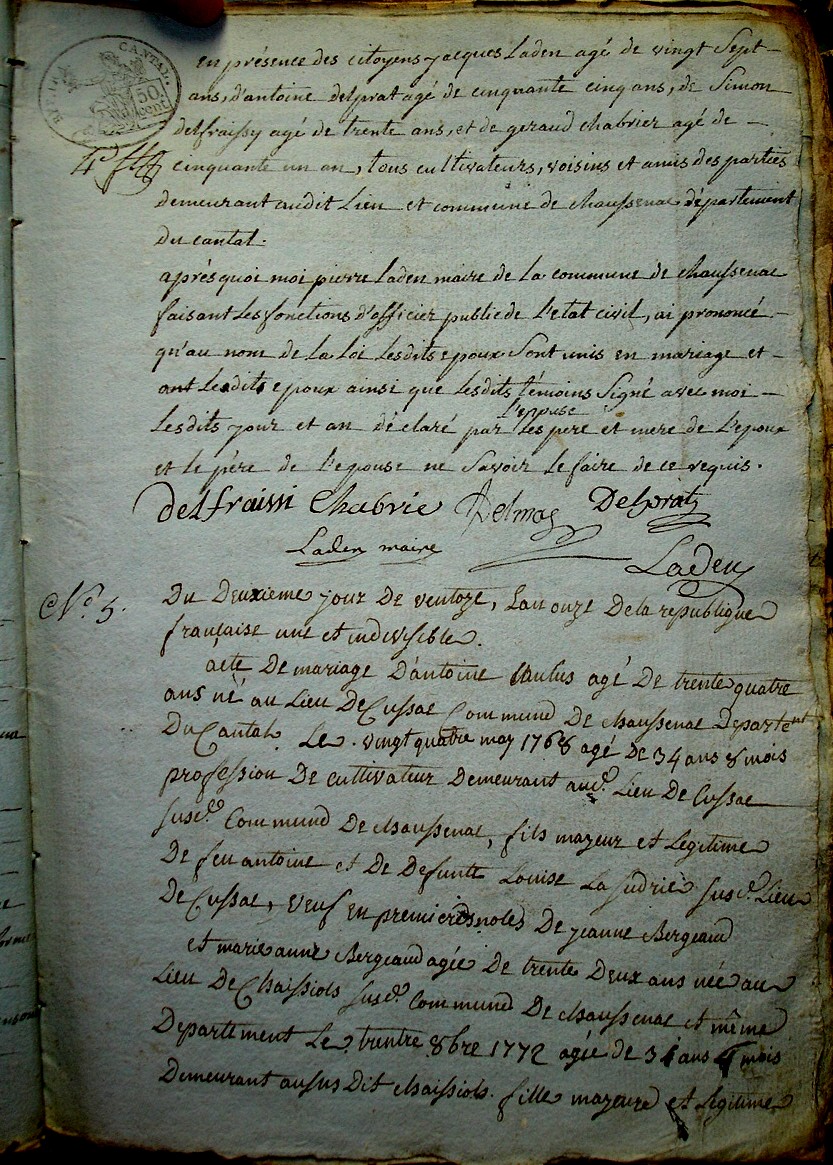 CANTAL.
50
cent
en présence des citoyens jacques Laden agé de vingt Sept
ans, d'antoine delprat agé de cinquante cinq ans, de Simon
delfraissy agé de trente ans, et de geraud Chabrier agé de
cinquante un an, tous cultivateurs, voisins et amis des parties
demeurant audit Lieu et commune de chaussenac département
du cantal.
après quoi moi pierre Laden maire de la commune de chaussenac
faisant les fonctions d'officier public de l'etat civil, ai prononcé
qu'au nom de la Loi Lesdits epoux Sont unis en mariage et
ont Lesdits epoux ainsi que Lesdits témoins Signé avec moi
l'epouse
Lesdits jour et an déclaré par Les pere et mere de l'epoux
et le père de l'epouse ne Savoir le faire de ce requis.
delfraissi Chabrie Delmas Delprat
Laden maire
Laden
N.° 5.
Du Deuxieme jour De ventoze, Lan onze De la republique
française une et indivisible.
acte De mariage D'antoine agé De trente quatre
ans né au Lieu De Cussac Commune De chaussenac Departemt
Du Cantal Le vingt quatre may 1768 agé De 34 ans 8 mois
profession De cultivateur Demeurant aud. Lieu De Cussac
susd. Commune De chaussenac, fils mazeur et Legitime
De feu antoine et De Defunte Louise La Sudrie susd. Lieu
De Cussac, veuf En premieres noles De jeanne Bergeaud
et marie anne Bergeaud agée De trente Deux ans née au
Lieu De Chaissiols susd. Commune De chaussenac et même
Departement Le trentre 8bre 1772 agée de ans mois
Demeurant au sus Dit chaissiols. fille mazeure et Legitime